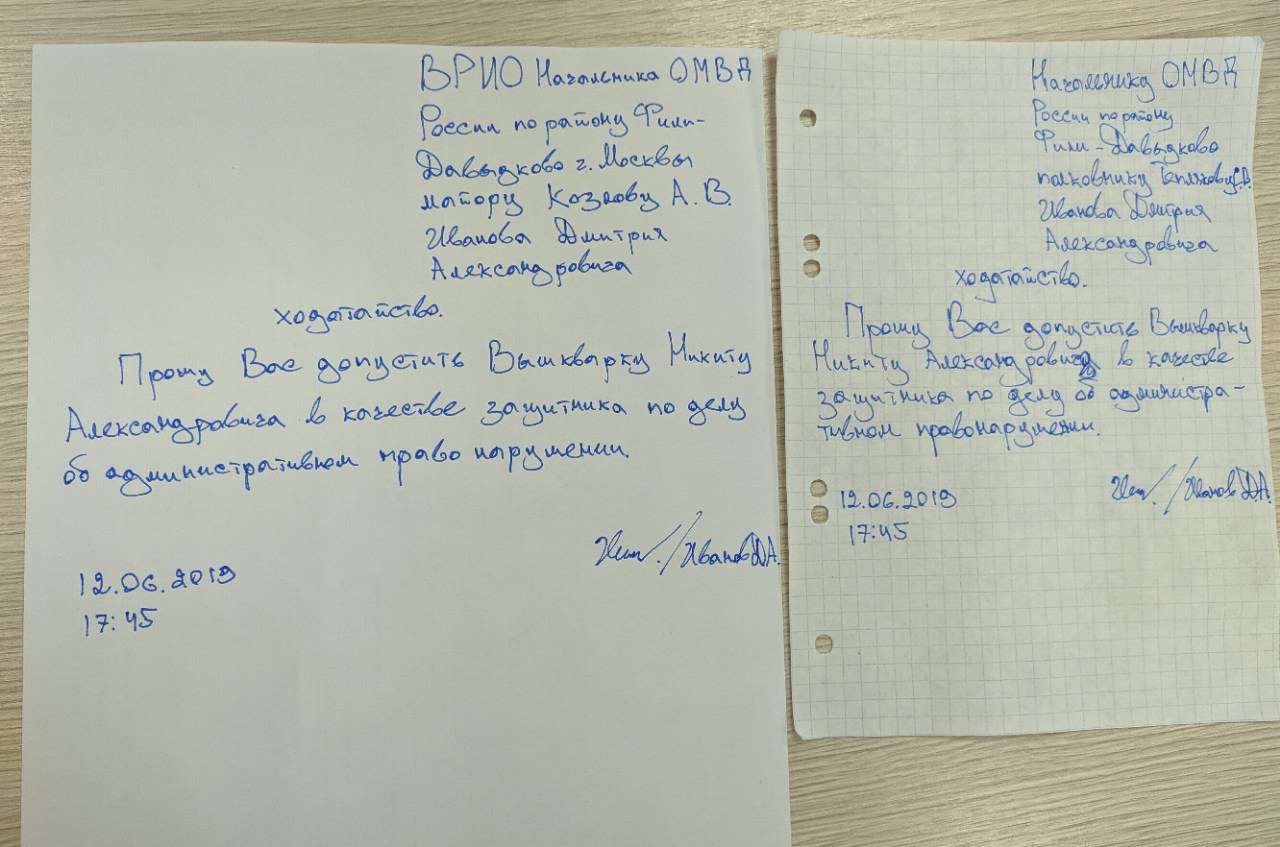 ВРИО Начальника ОМВД
России по району Фили-
Давыдково г. Москвы
майору Козлову А.В.
Иванова Дмитрия
Александровича
ходатайство.
Прошу Вас допустить Вышкварку Никиту
Александровича в качестве защитника по делу
об административном право нарушении.
/Иванов Д.А.
12.06.2019
17:45
Начальнику ОМВД
России по району
Фили-Давыдково
полковнику Теплякову С.В.
Иванова Дмитрия
Александровича
ходатайство.
Прошу Вас допустить Вышкварку
Никиту Александровича в качестве
защитника по делу об администра-
тивном правонарушении.
/Иванов Д.А.
12.06.2019
17:45